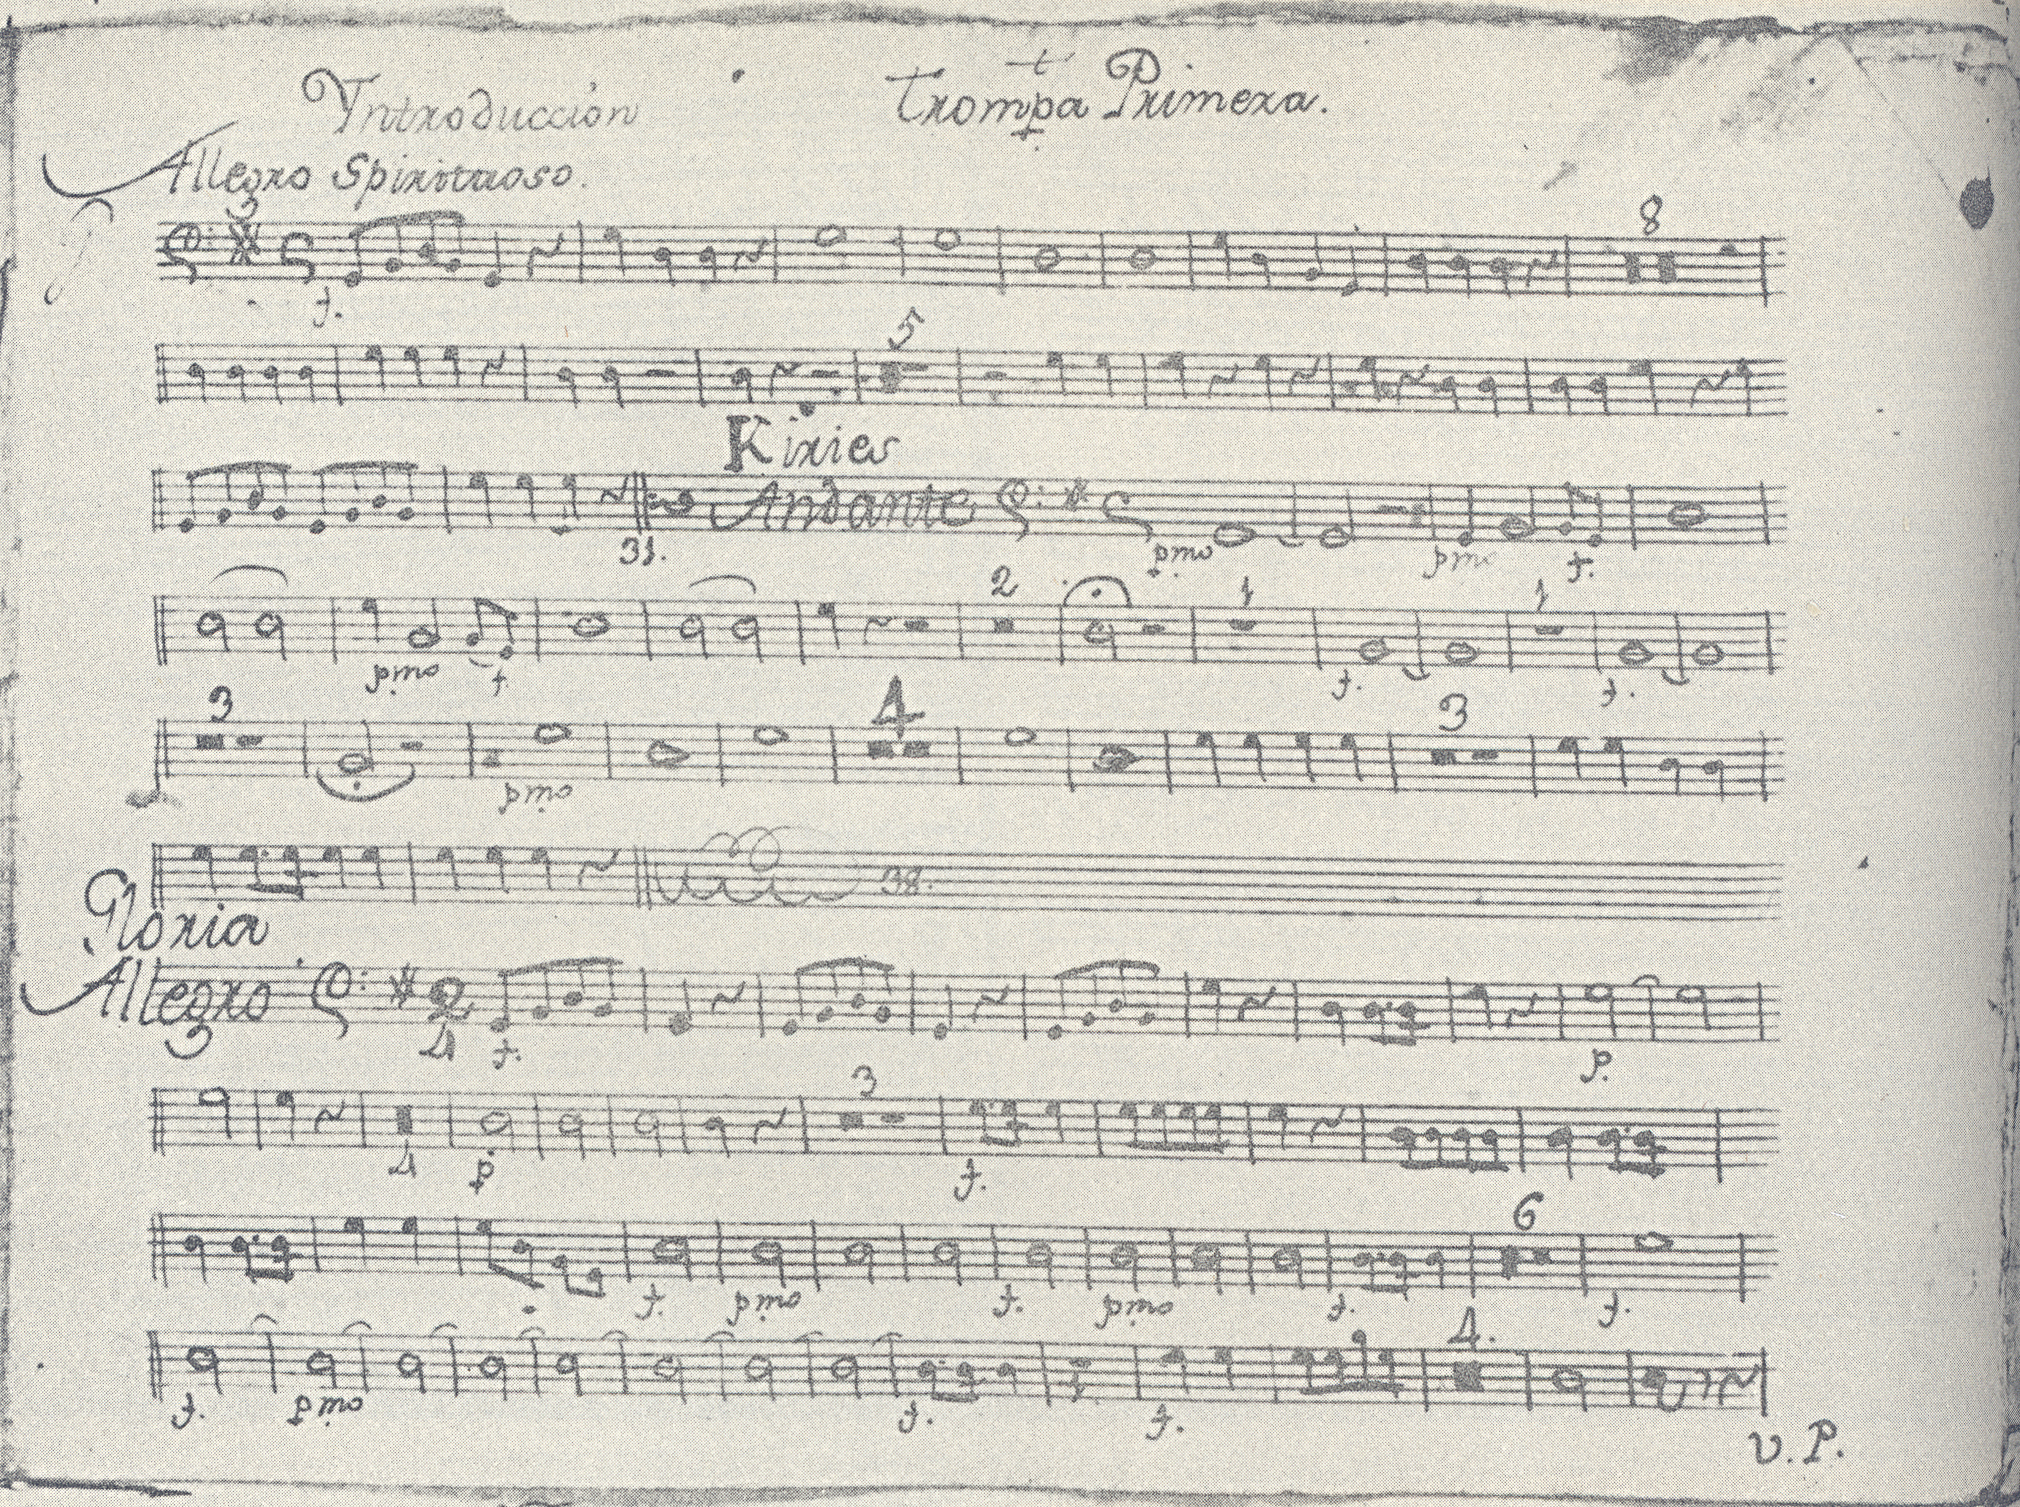 Introducción
Trompa Primera.
Allegro Spirituoso.
f.
8
5
Kiries
Andante
31.
pmo
pmo
f.
2
1
1
pmo
f.
f.
f.
3
4
3
pmo
38.
Gloria
Allegro
2
4
f.
p.
3
4
p
f.
6
f.
pmo
f.
pmo
f.
f.
4.
f.
pmo
f.
f.
V. P.